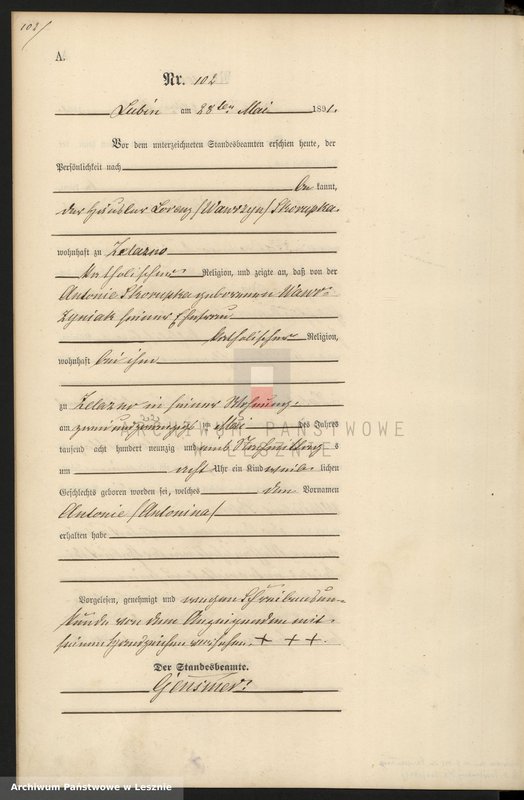 102/
A.
Nr. 102
Lubin am 28ten Mai 1891.
Vor dem unterzeichneten Standesbeamten erschien heute, der
Persönlichkeit nach
be kannt,
der Häusler Lorenz /Wawrzyn/ Skorupka
wohnhaft zu Zelazno
katholischer Religion, und zeigte an, daß von der
Antonie Skorupka geborenen Wawr-
zyniak seiner Ehefrau
katholischer Religion,
wohnhaft bei ihm
zu Zelazno in seiner Wohnung
am zwei und zwanzigsten Mai des Jahres
tausend acht hundert neunzig und eins Nachmittag s
um acht Uhr ein Kind weib lichen
Geschlechts geboren worden sei, welches den Vornamen
Antonie /Antonina/
erhalten habe
Vorgelesen, genehmigt und wegen Schreibensun-
kunde von dem Anzeigenden mit
seinem Handzeichen versehen. + + +.
Der Standesbeamte.
Gensmer
ARCHIWUM PAŃSTWOWE
W LESZNIE
Archiwum Państwowe w Lesznie